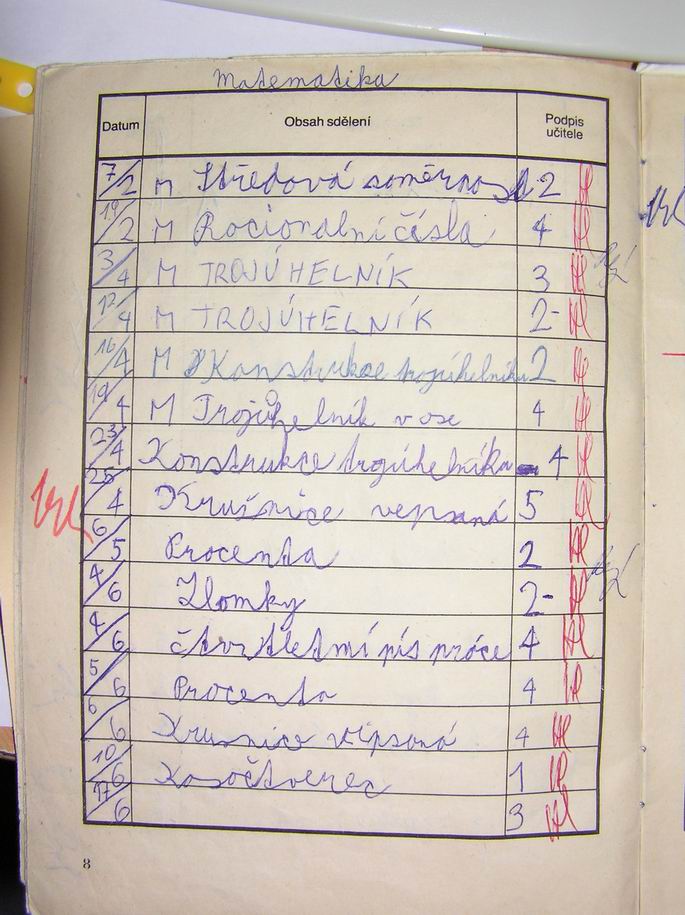 Matematika
Datum Obsah sdělení Podpis učitele
7/2 M Středová souměrnost 2
19/2 M Racionalní čísla 4
3/4 M TROJÚHELNÍK 3
12/4 M TROJÚHELNÍK 2-
16/4 M Konstrukce trojúhelníku 2
19/4 M Trojúhelník v ose 4
23/4 Konstrukce trojúhelníku 4
25/4 Krušnice vepsaná 5
6/5 Procenta 2
4/6 Zlomky 2-
4/6 čtvrtletmí pís práce 4
5/6 Procenta 4
6/6 Krusnice vepsaná 4
10/6 Kosočtverec 1
17/6 3
8